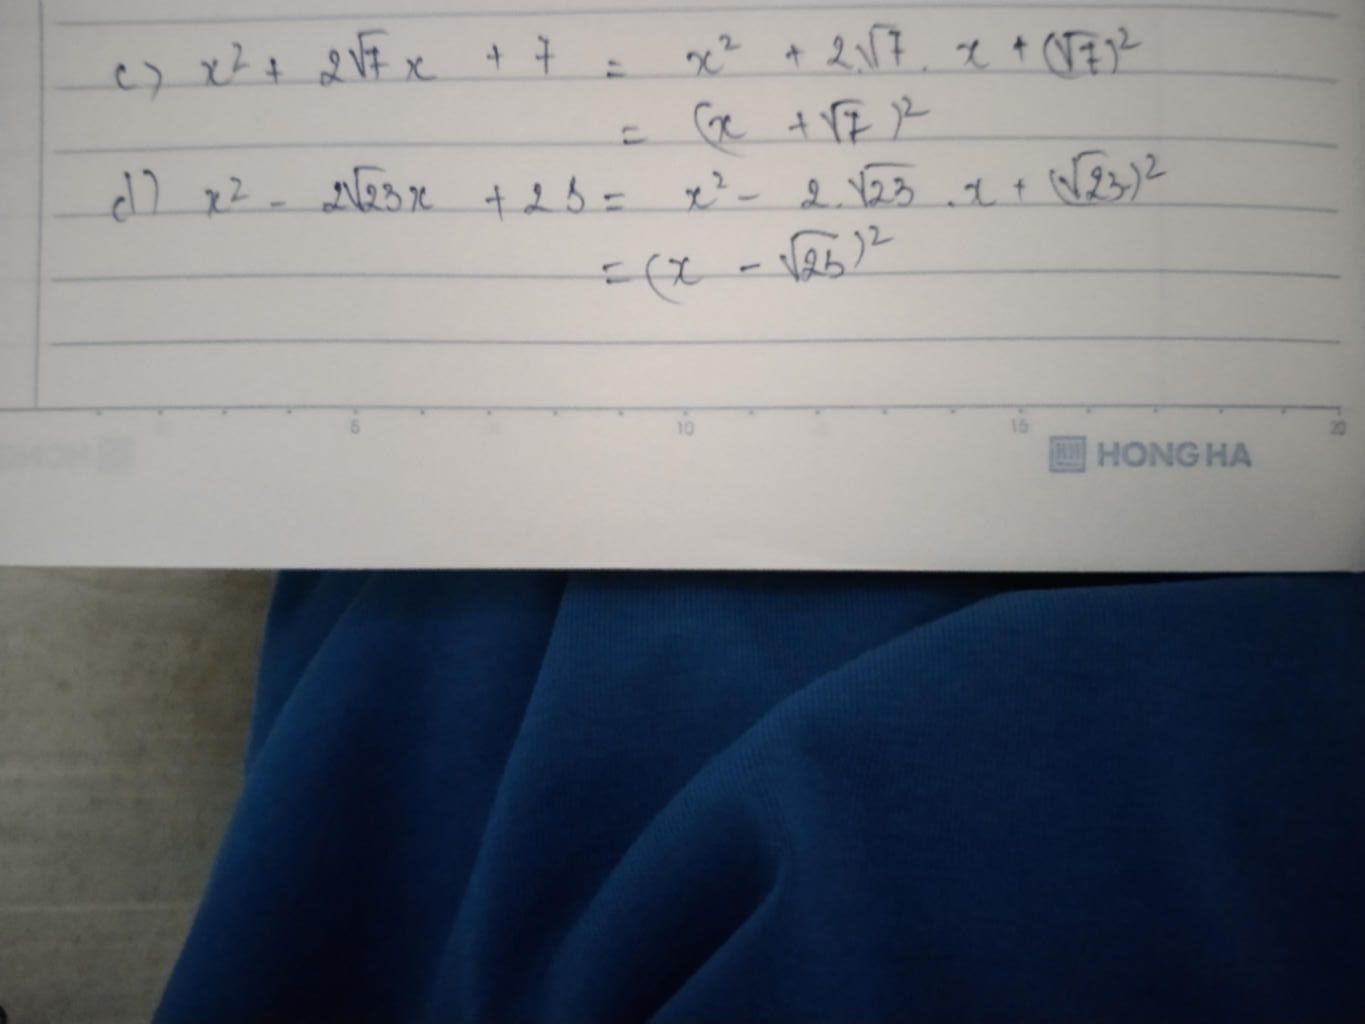 c) x² + 2√7 x + 7 = x² + 2.√7 . x + (√7)²
= (x + √7)²
d) x² - 2√23x + 23 = x² - 2.√23 .x + (√23)²
= (x - √23)²
5 10 15 20
HONG HA